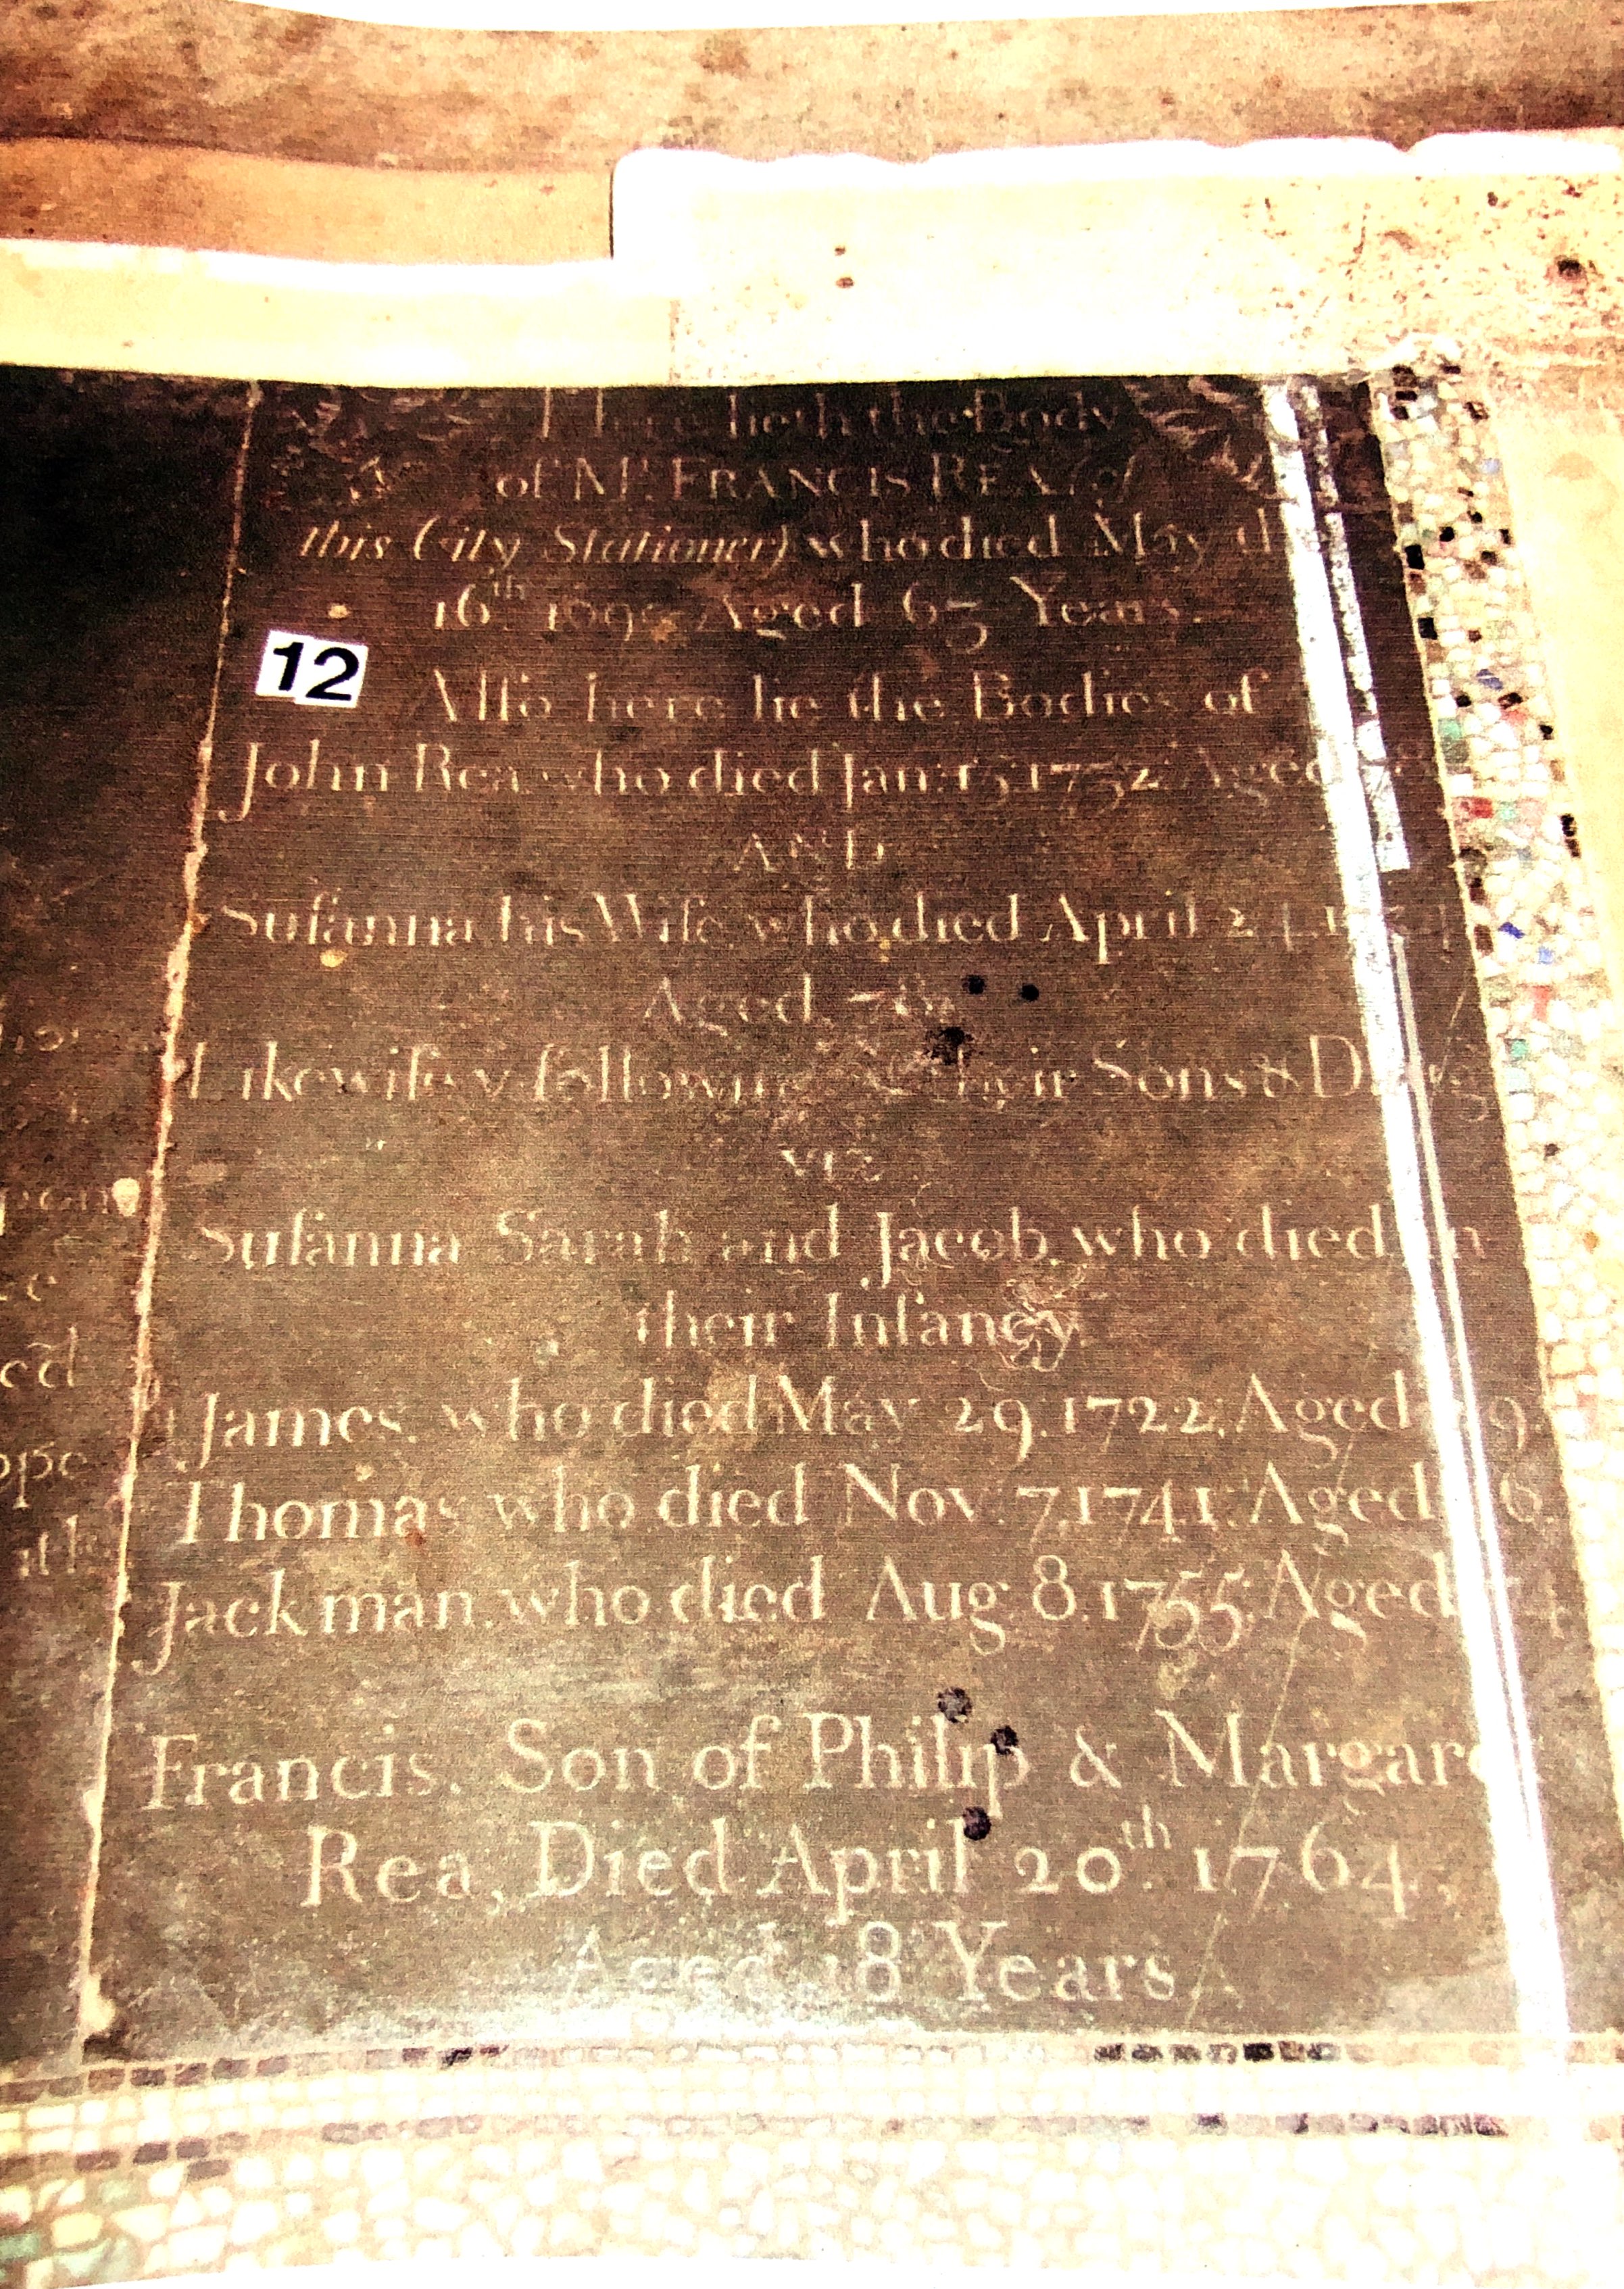 Here lieth the Body
of Mr. FRANCIS REA (of
this City Stationer) who died May
16th Aged 65 Years.
12
Alſo here lie the Bodies of
John Rea who died Jan: 15 1732 Aged
AND
Suſanna his Wife who died April
Aged
Likewiſe yͤ following their Sons &
viz
Suſanna Sarah and Jacob, who died in
their Infancy.
James, who died May 29. 1722. Aged
Thomas who died Nov. 7. 1741. Aged
Jackman, who died Aug. 8. 1755. Aged
Francis, Son of Philip &
Rea, Died April 20th. 1764,
Aged 18 Years